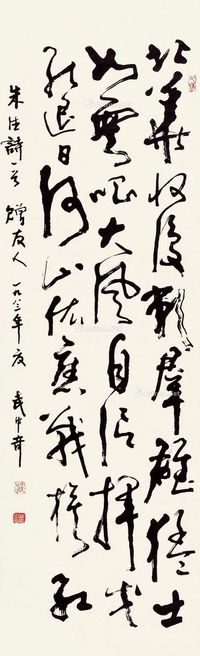 北華收復賴羣雄猛士
如雲唱大風自信揮戈
能退日河山依舊戰旗紅
朱德詩一首 贈友人 一九八三年夏 武中奇